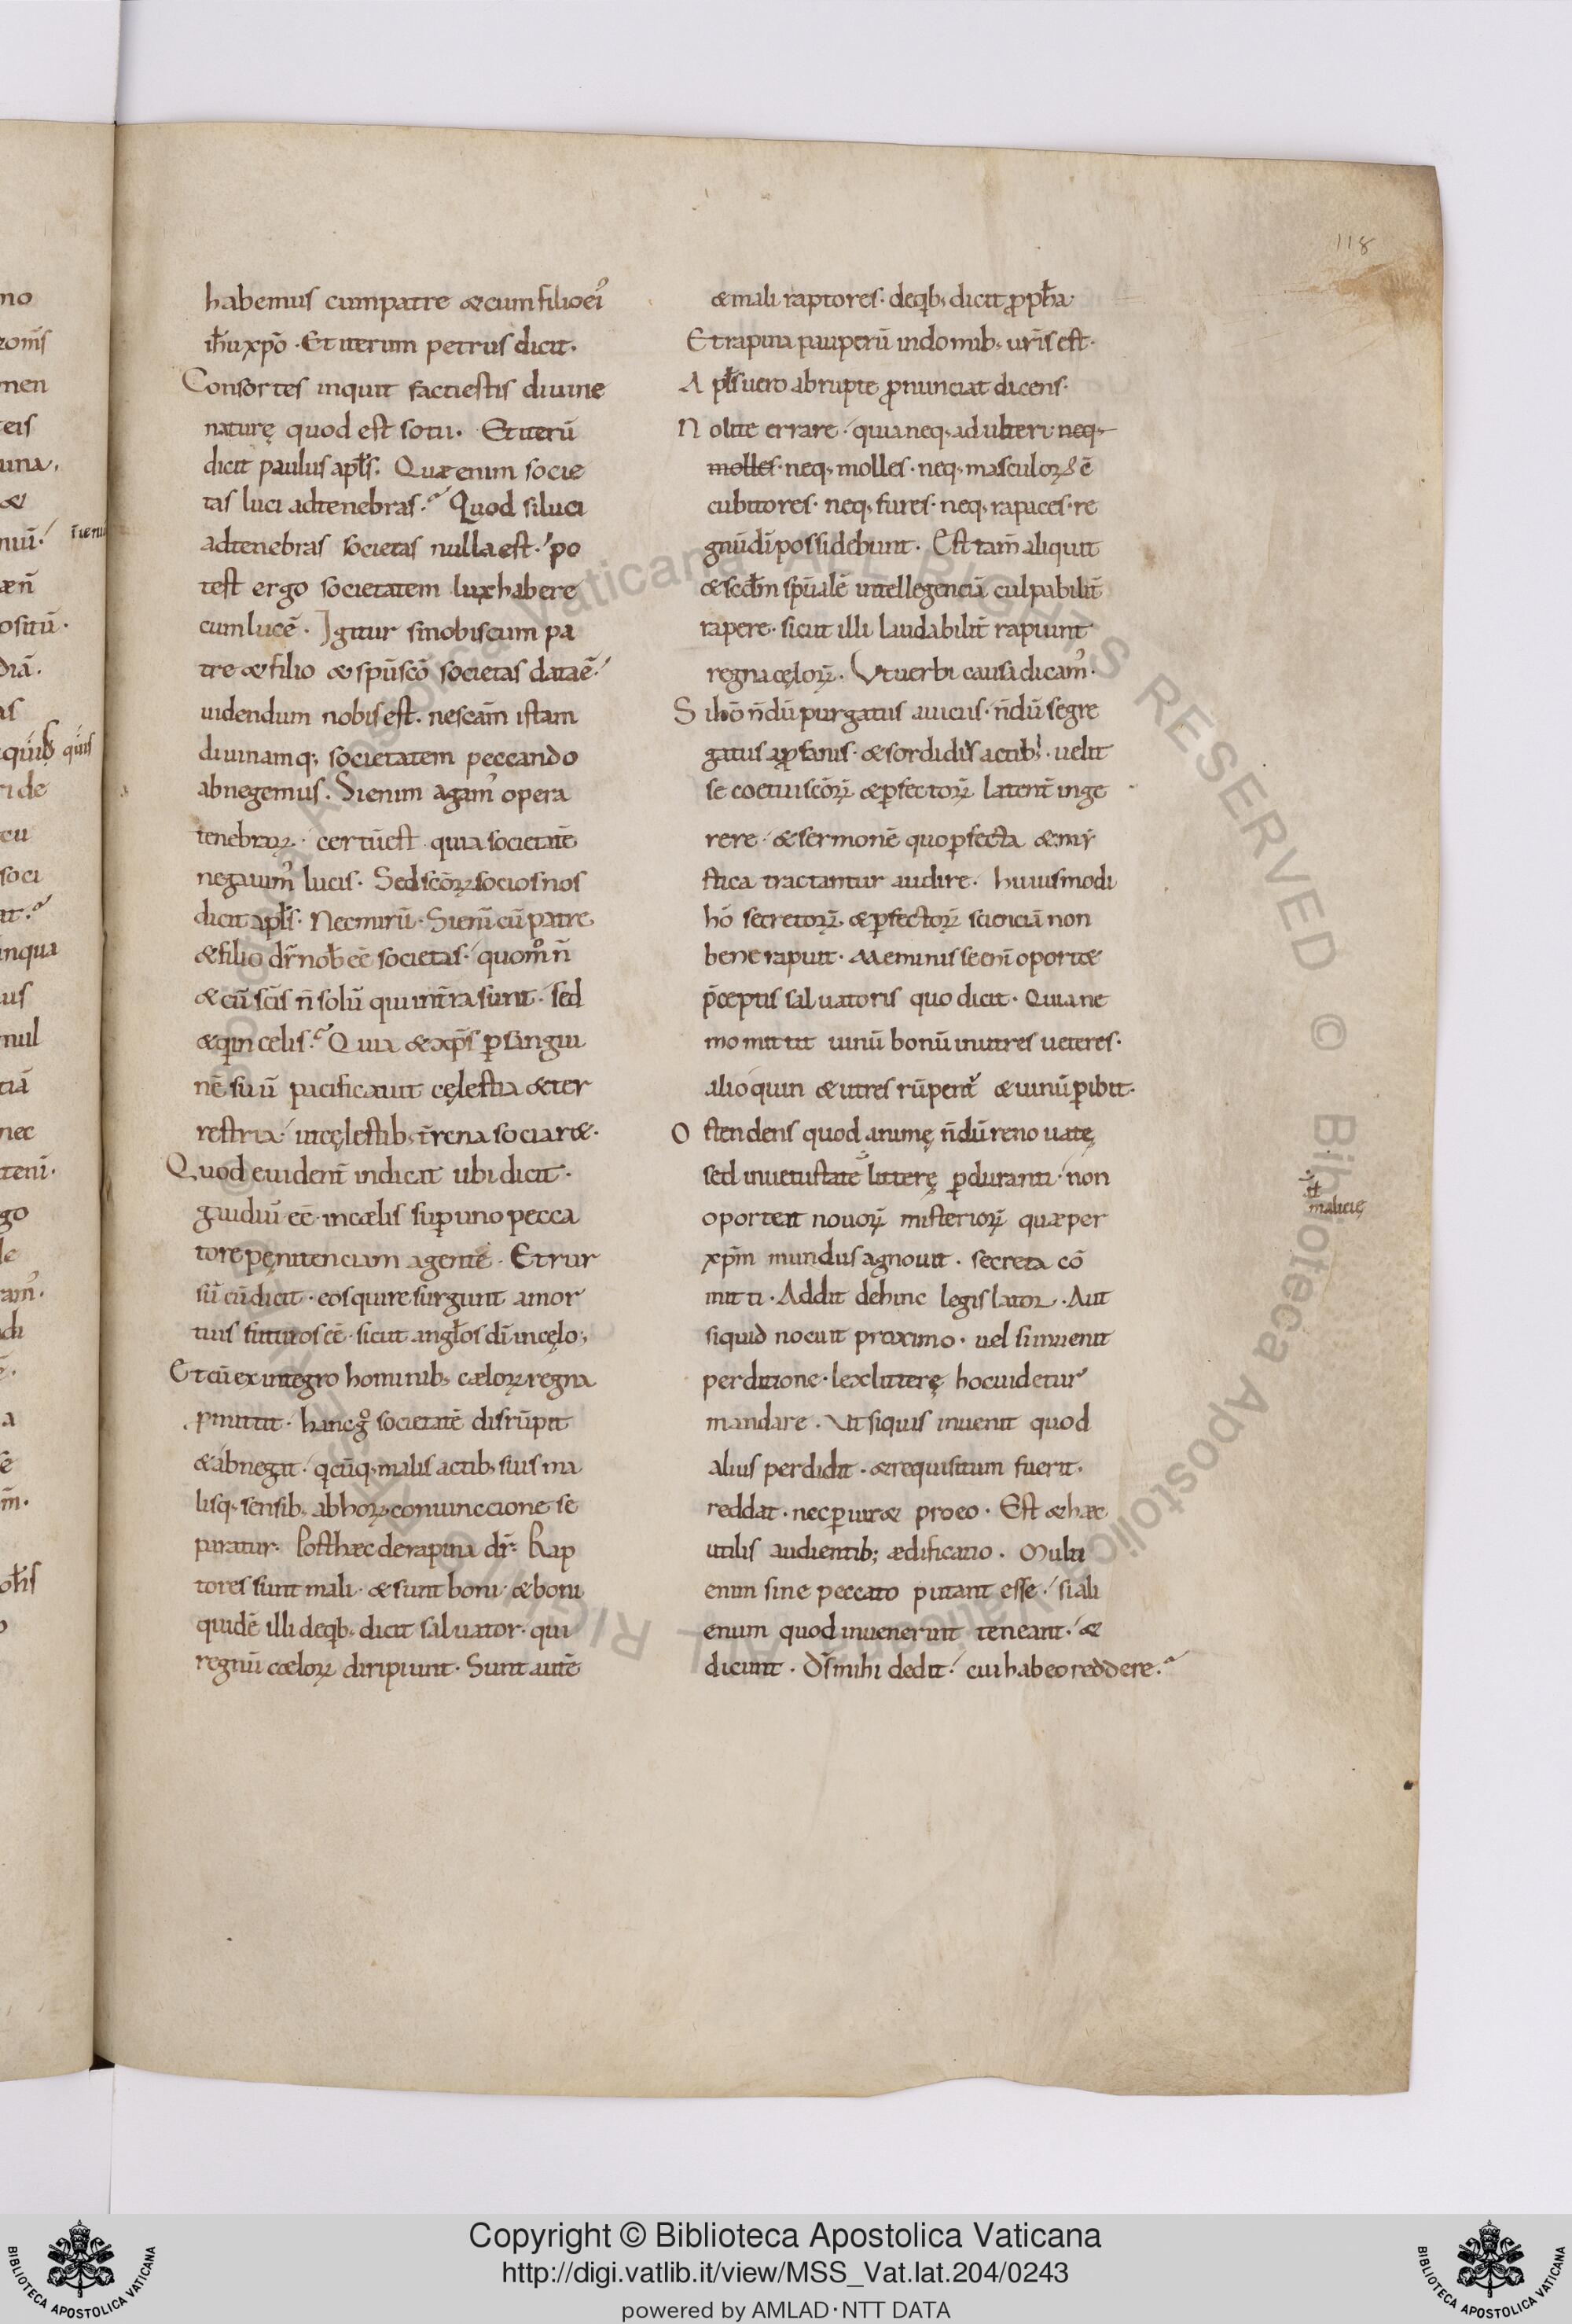 118
habemus cumpatre & cum filio ei᾽
ih̄u xp̄o · Et iterum petrus dicit·
Consortes inquit facti estis diuine
naturę quod est sotii· Et iterū
dicit paulus apl̄s· Quæ enim socie
tas luci ad tenebras·? Quod si luci
ad tenebras societas nulla est·/ po
test ergo societatem lux habere
cum lucē · Igitur si nobis cum pa
tre & filio & sp̄u sc̄o societas data ē·/
uidendum nobis est· ne scām istam
diuinamq; societatem peccando
abnegemus· Si enim agam᾽ opera
tenebraꝝ· certū est quia societatē
negauim᾽ lucis· Sed sc̄oꝝ socios nos
dicit apl̄s· Nec mirū· Si enī cū patre
& filio dr̄ nob̄ eē societas·/ quom̊ n̄
& cū sc̄is n̄ solū qui in t̄ra sunt· sed
& q̄ in celis·? Quia & xp̄s ꝑ sangui
nē suū pacificauit cęlestia & ter
restria·/ ut cęlestib; t̄rena sociar&·
Quod euident̄ indicat ubi dicit·
gaudiū eē· in cælis suꝑ uno pecca
tore pęnitenciam agente· Et rur
sū cū dicit· eos qui resurgunt amor
tuis futuros eē· sicut angl̄os dī in cęlo;
Et cū ex integro hominib; cæloꝝ regna
ꝓmittit· hanc g̊ societatē disrūpit
& abnegat·/ q̄cūq; malis actib; suis ma
lisq; sensib; ab hoꝝ coniunccione se
paratur· Post hæc de rapina dr̄· Rap
tores sunt mali· & sunt boni· & boni
quidē illi de q̄b; dicit saluator· qui
regnū cæloꝝ diripiunt· Sunt autē
& mali raptores· de q̄b; dicit ꝓph̄a·
Et rapina pauperū in domib; ur̄is est·
Apl̄s uero abrupte ꝓnunciat dicens·
Nolite errare·/ quia neq; adulteri neq;
molles· neq; molles· neq; masculoꝝ
cubitores· neq; fures· neq; rapaces· re
gnū dī possidebunt· Est tam̄ aliquit
& scd̄m sp̄ualē intellegenciā culpabilit̄
rapere· sicut illi laudabilit̄ rapiunt
regna cęloꝝ· Vt uerbi causa dicam᾽·
Si hō n̄dū purgatus a uicus· n̄dū segre
gatus a ꝓfanis· & sordidis actib;· uelit
se coetui sc̄oꝝ & ꝑfectoꝝ latent̄ inge
rere·/ & sermonē quo ꝑfecta & mi
stica tractantur audire· huiusmodi
hō secretoꝝ & ꝑfectoꝝ scienciā non
bene rapuit· Meminisse enī oport&
p̄ceptis saluatoris quo dicit· Quia ne
mo mittit uinū bonū in utres ueteres·
alioquin & utres rūpent̄ & uinū ꝑibit·
Ostendens quod animę n̄dū renouatę
sed in uetustate litterę ꝑduranti·/ non
oporteat nouoꝝ misterioꝝ quæ per
xp̄m mundus agnouit· secreta cō
mitti· Addit dehinc legislator· Aut
siquid nocuit proximo· uel si inuenit
perditione· lex litterę hoc uidetur
mandare· Vt siquis inuenit quod
alius perdidit· & requisitum fuerit·
reddat· nec ꝑiur& pro eo· Est & hæc
utilis audientib; ædificatio· Multi
enim sine peccato putant esse·/ si ali
enum quod inuenerint teneant·/ &
dicunt· Ds̄ mihi dedit·/ cui habeo reddere·?
malicię
Copyright © Biblioteca Apostolica Vaticana
http://digi.vatlib.it/view/MSS_Vat.lat.204/0243
powered by AMLAD·NTT DATA